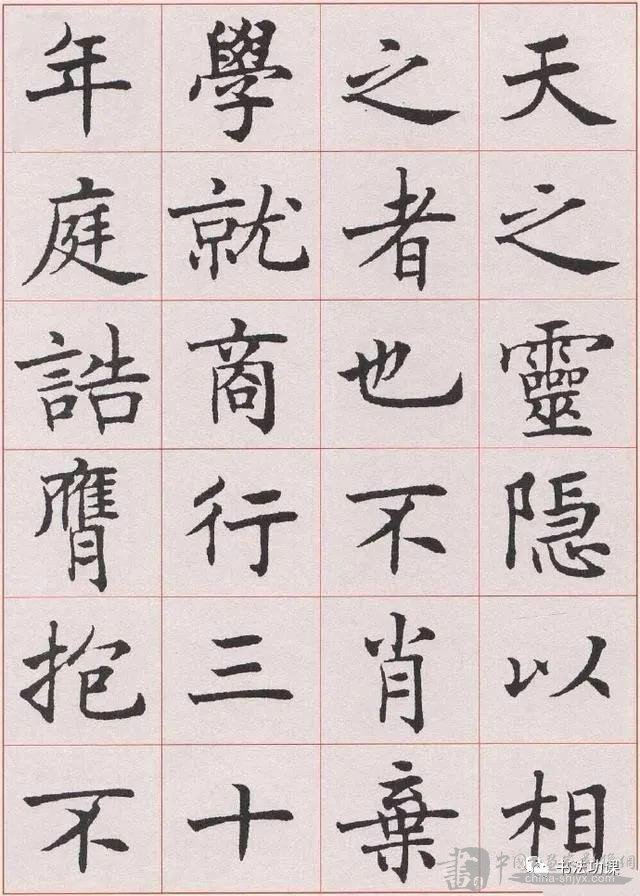 天之靈隱以相
之者也不肖棄
學就商行三十
年庭誥膺抱不
书法功课
china-shjyx.com